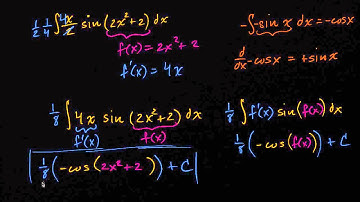 1/2 1/4 ∫ 4x/2 sin(2x²+2) dx
f(x) = 2x²+2
f'(x) = 4x
-∫-sin x dx = -cos x
d/dx -cos x = +sin x
1/8 ∫ 4x sin(2x²+2) dx
f'(x) f(x)
1/8 (-cos(2x²+2)) + C
1/8 ∫ f'(x) sin(f(x)) dx
1/8 (-cos(f(x))) + C